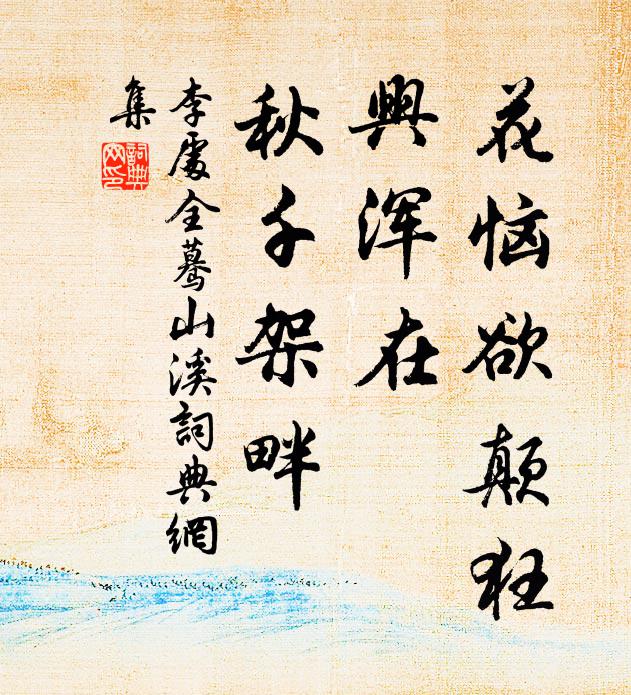 花恼欲颠狂
興浑在
秋千架畔
李處全蓦山溪詞典網
集
詞典
网印